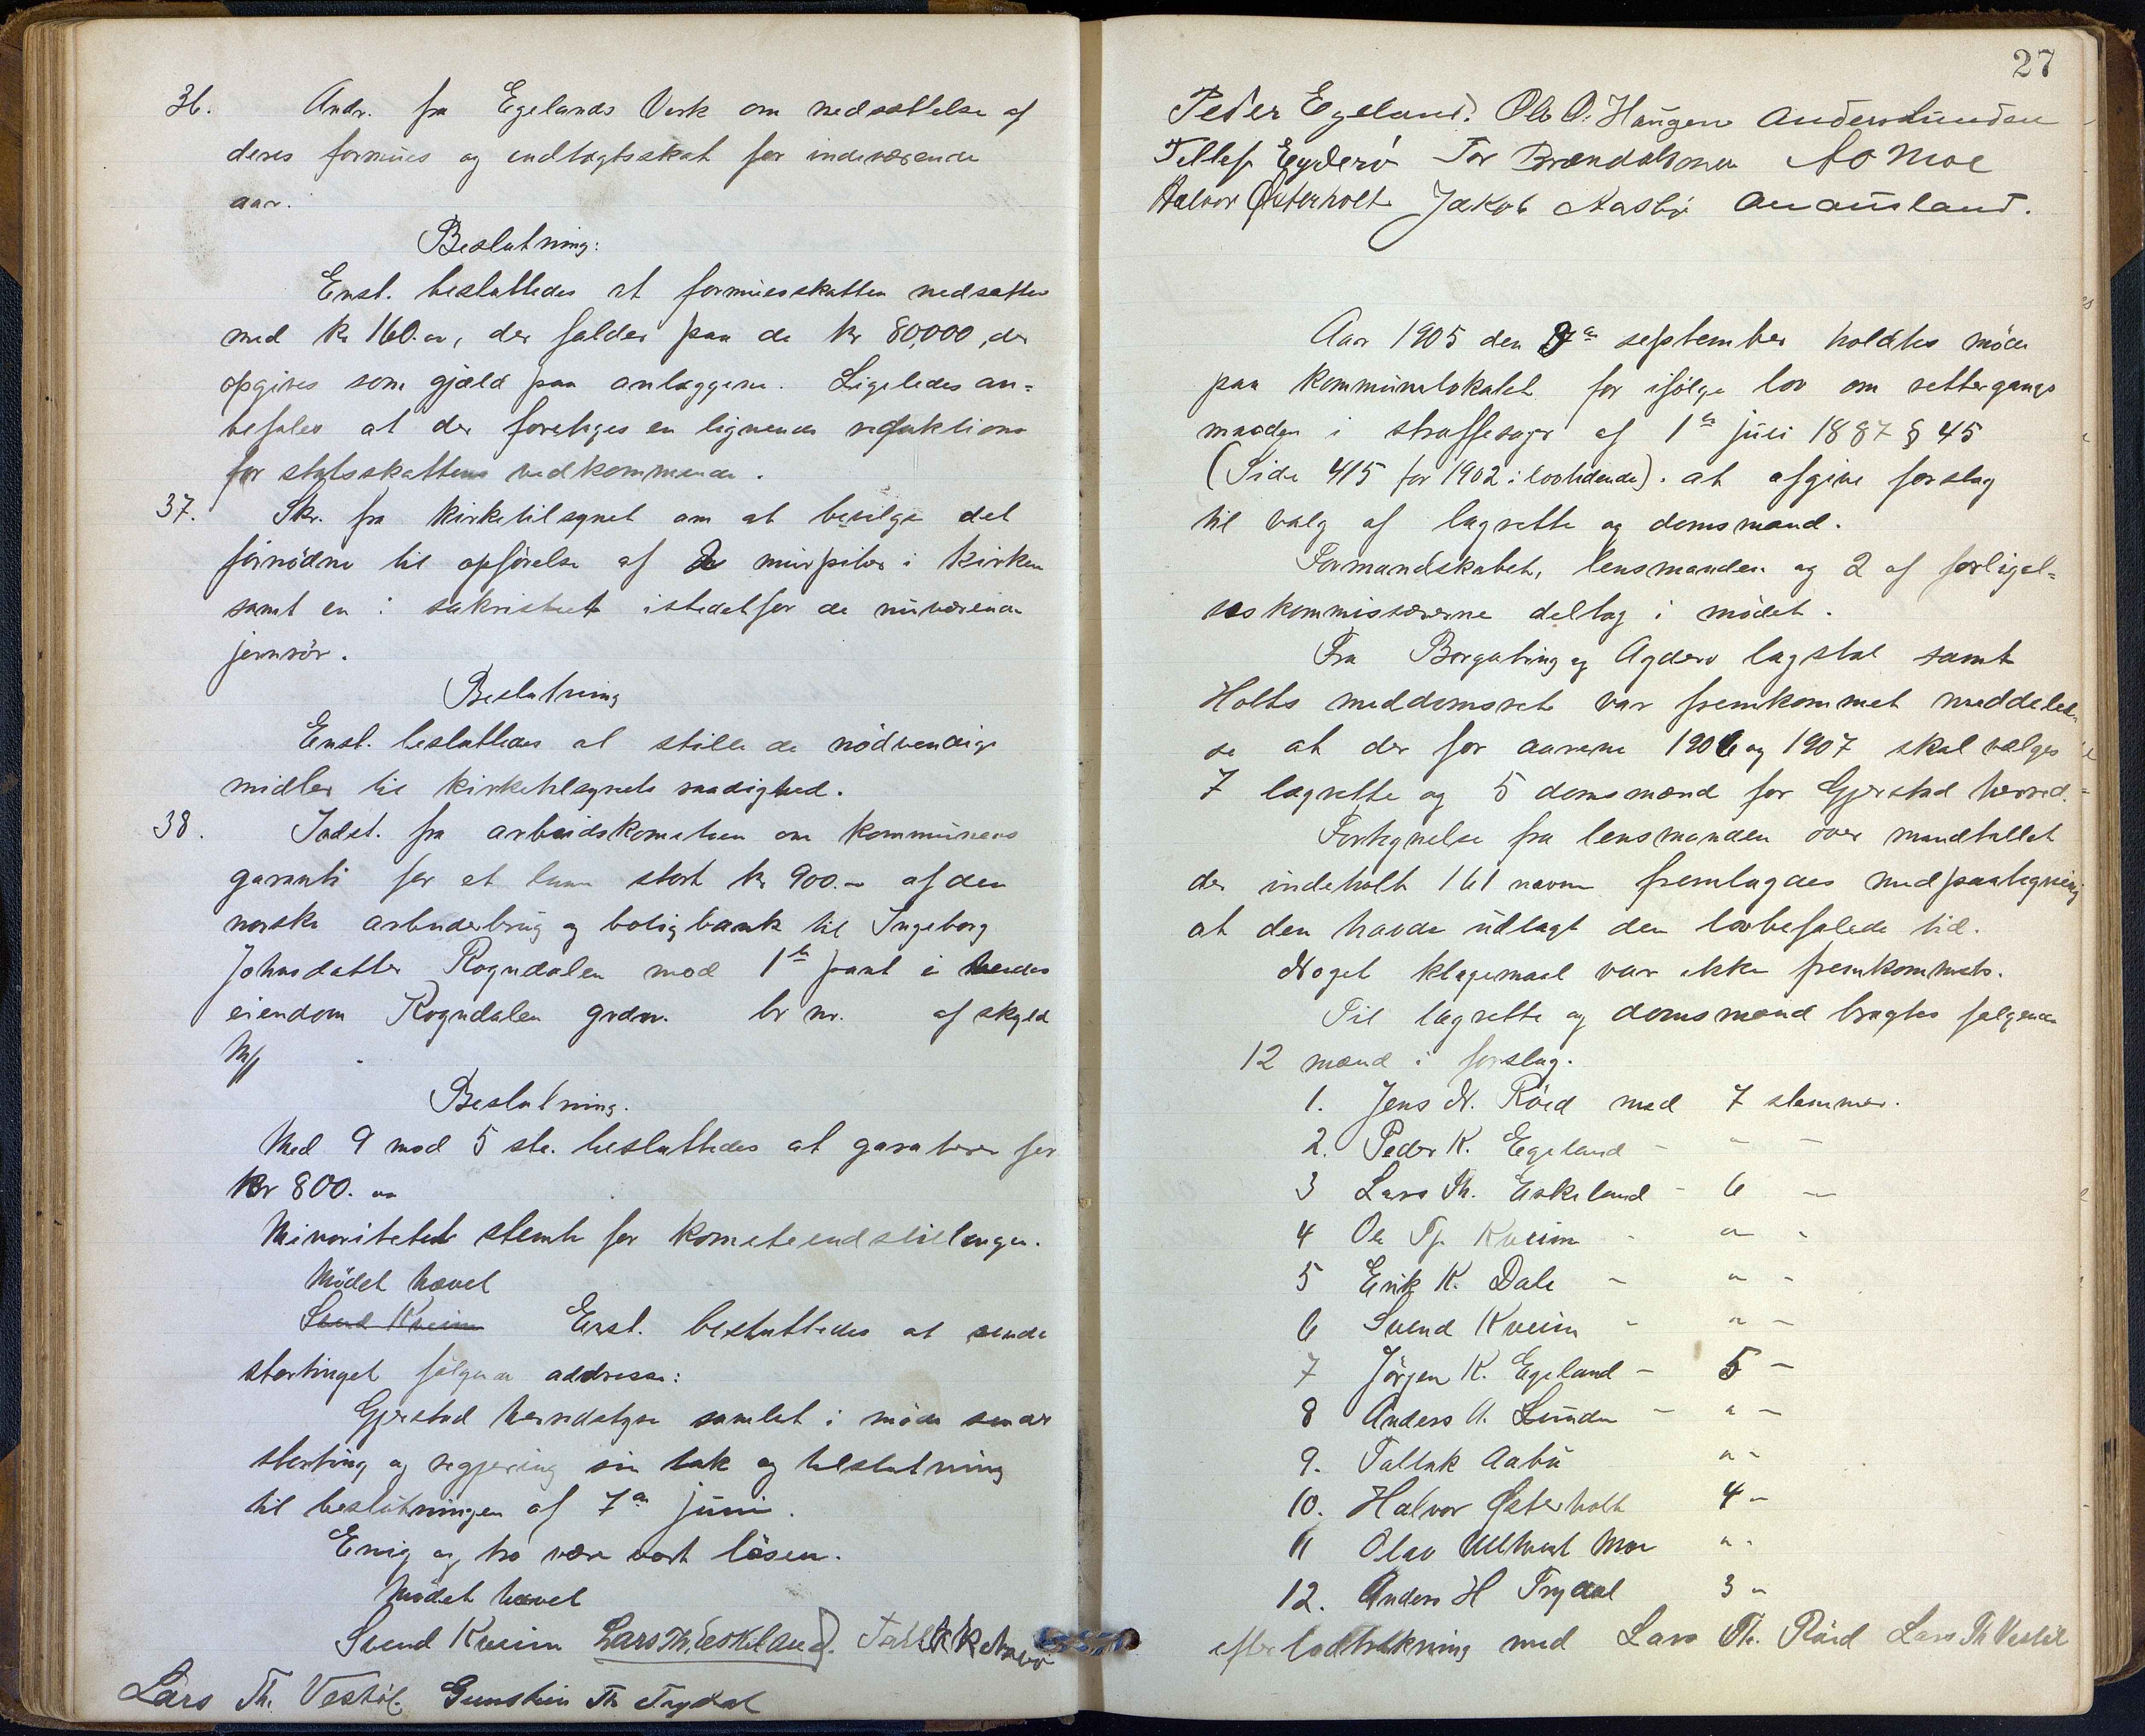 36. Andr. fra Egelands Verk om nedsættelse af
deres formues og indtægtsskat for indeværende
aar.
Beslutning:
Enst. besluttedes at formuesskatten nedsættes
med kr 160.00, der falder paa de kr 80,000, der
opgives som gjæld paa anlæggene. Ligeledes an-
befales at der foretages en lignende reduktion
for statsskattens vedkommende.
37. Skr. fra kirketilsynet om at bevilge det
fornødne til opførelse af 2 murpiber i kirken
samt en i sakristiet istedetfor de nuværende
jernrör.
Beslutning
Enst. besluttedes at stille de nödvendige
midler til kirketilsynets raadighed.
38. Indst. fra arbeidskomiteen om kommunens
garanti for et laan stort kr 900.- af den
norske arbeiderbrug og boligbank til Ingeborg
Johnsdatter Rogndalen mod 1ste pant i hendes
eiendom Rogndalen grdnr. br nr. af skyld
M/
Beslutning.
Med 9 mod 5 ste. besluttedes at garantere for
Kr 800. 00
Minoriteten stemte for komiteindstillingen.
Mödet hævet
Svend Kveim Enst. besluttedes at sende
stortinget følgende addresse:
Gjerstad herredstyre samlet i møde sender
storting og regjering sin tak og tilslutning
til beslutningen af 7de juni.
Enig og tro være vort løsen.
Mödet hævet
Svend Kveim Lars Th. Eskeland. Tallak K Aabø
Lars Th. Vestøl Gunstein Th Trydal
27
Peder Egeland. Ole O. Haugen Anders Lunden
Tellef Eyderö Tor Brændalsmoen AO Moe
Halvor Østerholt Jakob Aasbø An Ausland.
Aar 1905 den 9de september holdtes møde
paa kommunelokalet for ifølge lov om rettergangs
maaden i straffesager af 1ste juli 1887 § 45
(Side 415 for 1902 i lovtidende). at afgive forslag
til valg af lagrette og domsmænd.
Formandskabet, lensmanden og 2 af forligel-
seskommissærerne deltog i mødet.
Fra Borgating og Agders lagstol samt
Holts meddomsret var fremkommet meddelel-
se at der for aarene 1906 og 1907 skal vælges
7 lagrette og 5 domsmænd for Gjerstad herred.
Fortegnelse fra lensmanden over mandtallet
der indeholt 161 navne fremlagdes med paategning
at den havde udlagt den lovbefalede tid.
Noget klagemaal var ikke fremkommet.
Til lagrette og domsmænd bragtes følgende
12 mænd i forslag.
1. Jens N. Röed med 7 stemmer.
2. Peder K. Egeland - " -
3 Lars Th. Eskeland - 6 -
4 Ole Tj. Kveim - " -
5 Erik K. Dale - " -
6 Svend Kveim - " -
7 Jörgen K. Egeland - 5 -
8 Anders A. Lunden - " -
9. Tallak Aabø " -
10. Halvor Østerholt 4 -
11 Olav Moe " -
12. Anders H Trydal 3 "
efter lodtrækning med Lars Th. Röed Lars Th Vestøl